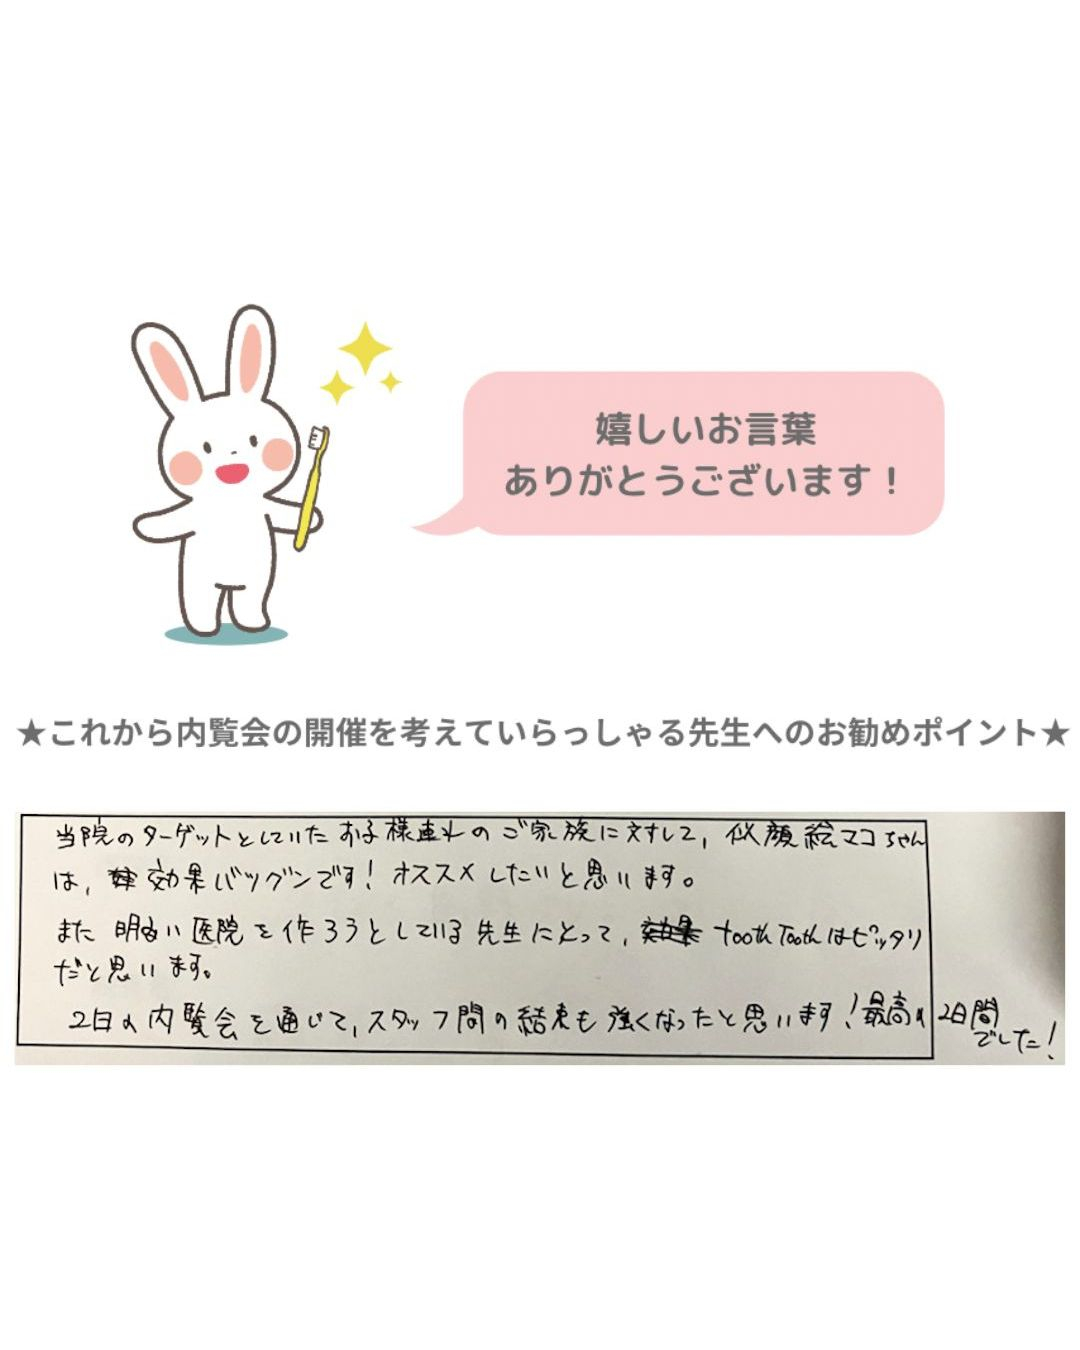 嬉しいお言葉
ありがとうございます！
★これから内覧会の開催を考えていらっしゃる先生へのお勧めポイント★
当院のターゲットとしていたお子様連れのご家族に対して、似顔絵マコちゃん
は、効果バツグンです！オススメしたいと思います。
また明るい医院を作ろうとしている先生にとって、toothToothはピッタリ
だと思います。
2日の内覧会を通じて、スタッフ間の結束も強くなったと思います！最高の2日間
でした！